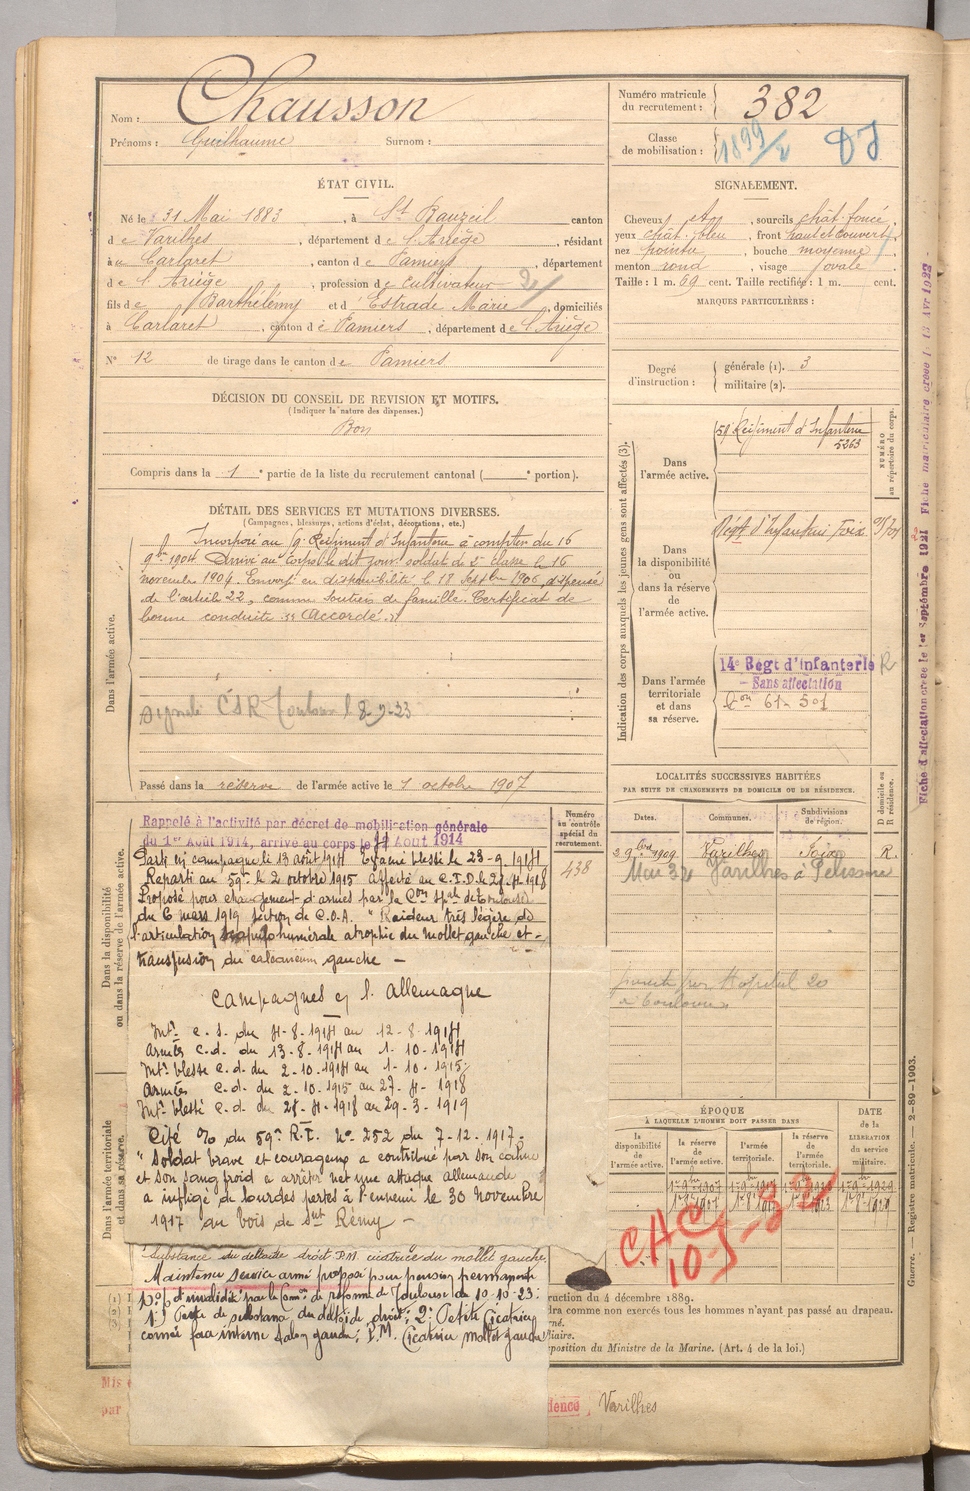 Nom : Chausson
Prénoms : Guilhaume Surnom :
Numéro matricule du recrutement : 382
Classe de mobilisation : 1899/2
ÉTAT CIVIL.
Né le 31 Mai 1883, à St Bauzeil canton
de Varilhes, département de l'Ariège, résidant
à Carlaret, canton de Pamiers, département
de l'Ariège, profession de Cultivateur
fils de Barthélémy et d'Estrade Marie domiciliés
à Carlaret, canton de Pamiers, département de l'Ariège
N° 12 de tirage dans le canton de Pamiers
SIGNALEMENT.
Cheveux et, sourcils chât. foncé
yeux chât. bleu, front haut et couvert
nez pointu, bouche moyenne
menton rond, visage ovale
Taille : 1 m. 69 cent. Taille rectifiée : 1 m. cent.
MARQUES PARTICULIÈRES :
Degré d'instruction : générale (1). 3
militaire (2).
DÉCISION DU CONSEIL DE REVISION ET MOTIFS.
(Indiquer la nature des dispenses.)
Bon
Compris dans la 1e partie de la liste du recrutement cantonal ( e portion).
DÉTAIL DES SERVICES ET MUTATIONS DIVERSES.
(Campagnes, blessures, actions d'éclat, décorations, etc.)
Dans l'armée active.
Incorporé au 59e Régiment d'Infanterie à compter du 16
9bre 1904. Arrivé au Corps le dit jour soldat de 2e classe le 16
novembre 1904. Envoyé en disponibilité le 18 Septbre 1906, dispensé
de l'article 22, comme soutien de famille. Certificat de
bonne conduite "Accordé."
CSR Toulouse 8-9-23
Passé dans la réserve de l'armée active le 1 octobre 1907
Indication des corps auxquels les jeunes gens sont affectés (3).
Dans l'armée active.
59e Régiment d'Infanterie
5263
NUMÉRO au répertoire du corps.
Dans la disponibilité ou dans la réserve de l'armée active.
Régt d'Infanterie Foix
Dans l'armée territoriale et dans sa réserve.
14e Régt d'infanterie R
- Sans affectation
LOCALITÉS SUCCESSIVES HABITÉES
PAR SUITE DE CHANGEMENTS DE DOMICILE OU DE RÉSIDENCE.
Dates. Communes. Subdivisions de région. D domicile ou R résidence.
Varilhes Foix R.
Mai 32 Varilhes à Pelissou
Hopital 20
à Toulouse
Dans la disponibilité ou dans la réserve de l'armée active.
Numéro au contrôle spécial du recrutement.
438
Rappelé à l'activité par décret de mobilisation générale
du 1er Août 1914, arrivé au corps le 4 Août 1914
Parti en campagne le 13 août 1914 Evacué blessé le 23-9-1914
Reparti au 59e le 2 octobre 1915 affecté au C.I.D. le 27-4-1918
Proposé pour changement d'armes par la Con Spale de Toulouse
du 6 mars 1919 section de C.O.A. "Raideur très légère de
l'articulation scapulo humérale atrophie du mollet gauche et -
transfusion du calcanéum gauche -
Campagnes c/ l'allemagne
Intr c.s. du 4-8-1914 au 12-8-1914
Armées c.d. du 13-8-1914 au 1-10-1914
Intr blessé c.d. du 2-10-1914 au 1-10-1915
Armées c.d. du 2-10-1915 au 27-4-1918
Intr blessé c.d. du 28-4-1918 au 29-3-1919
Cité o/o du 59e R.I. No 252 du 7-12-1917.
"Soldat brave et courageux a contribué par son calme
et son sang froid a arrêter net une attaque allemande
a infligé de lourdes pertes à l'ennemi le 30 novembre
1917 au bois de St Rémy -
Dans l'armée territoriale et dans sa réserve.
substance du deltoïde droit P.M. cicatrice du mollet gauche
Maintenu Service armé proposé pour pension permanente
10 p% d'invalidité par la Comon de réforme de Toulouse du 10-10-23:
1°) Perte de substance du deltoïde droit; 2° Petite Cicatrice
cornée face interne talon gauche; P.M. Cicatrice mollet gauche
ÉPOQUE
À LAQUELLE L'HOMME DOIT PASSER DANS
la disponibilité de l'armée active. la réserve de l'armée active. l'armée territoriale. la réserve de l'armée territoriale.
DATE de la LIBÉRATION du service militaire.
CAC
10-5-32
ruction du 4 décembre 1889.
dra comme non exercés tous les hommes n'ayant pas passé au drapeau.
position du Ministre de la Marine. (Art. 4 de la loi.)
Mis
par
dence Varilhes
Fiche d'affectation créée le 1er Septembre 1921 Fiche matriculaire créée le 18 Avr 1922
Guerre. — Registre matricule. — 2-89-1903.